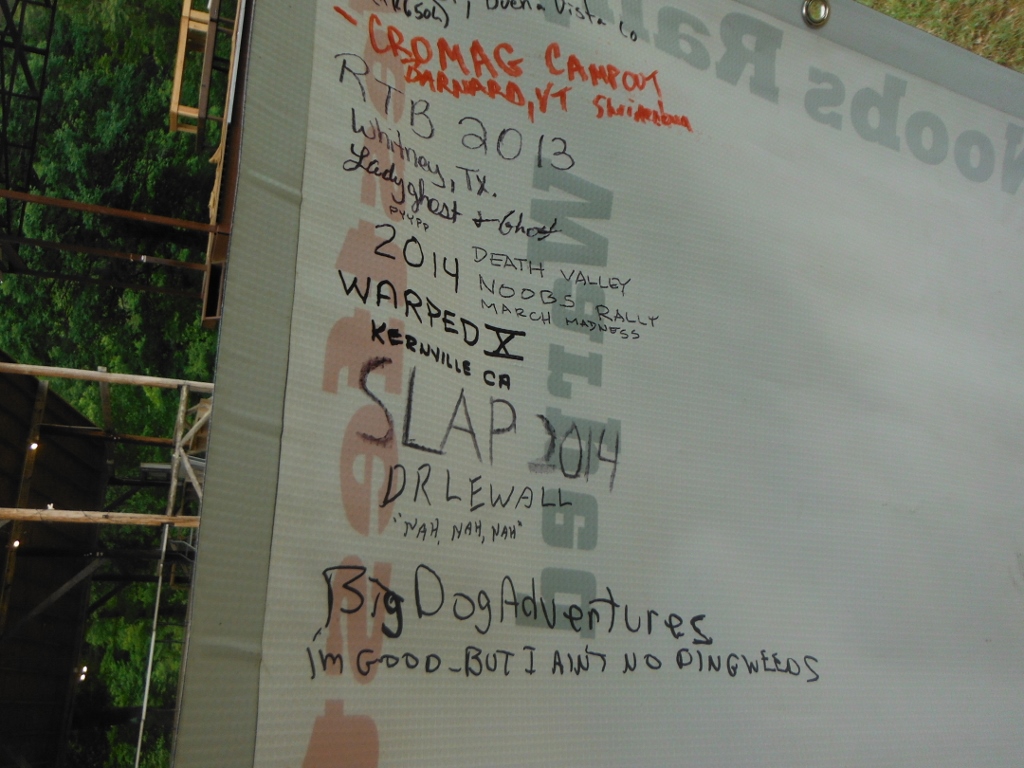 Buena Vista Co
CRDMAG CAMPOUT
BARNARD, VT
RTB 2013
Whitney, TX.
Ladyghost & Ghost
PYYPP
2014 DEATH VALLEY
NOOBS RALLY
MARCH MADNESS
WARPED X
KERNVILLE CA
SLAP 2014
DRLEWALL
"NAH, NAH, NAH"
BigDogAdventures
i'm GOOD-BUT I AIN'T NO DINGWEEDS
Noobs Rall